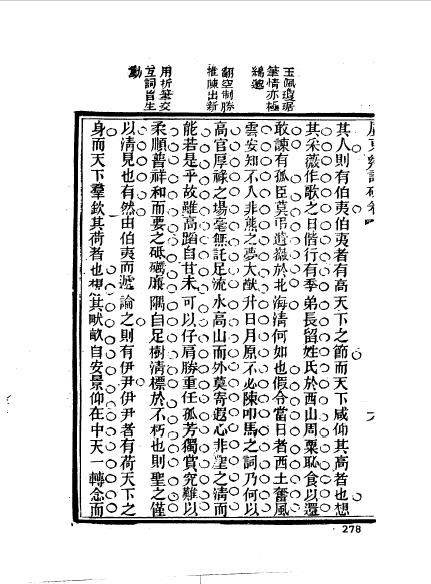 玉佩瓊琚
筆情亦極
翻空制勝
推陳出新
用折筆交
互詞旨生
動
其人則有伯夷伯夷者有高天下之節而天下咸仰其高者也想
其采薇作歌之日偕行有季弟長留姓氏於西山周粟恥食以還
敢諫有孤臣莫弔遺嶽於北海清何如也假令當日者西土奮風
雲安知不入非熊之夢大猷升日月原不必陳叩馬之詞乃何以
高官厚祿之場毫無託足流水高山而外莫寄遐心非聖之清而
能若是乎故雖高蹈自甘未可以仔肩勝重任孤芳獨賞究難以
柔順普祥和而要之砥礪廉隅自足樹清標於不朽也則聖之僅
以清見也有然由伯夷而遞論之則有伊尹伊尹者有荷天下之
身而天下羣欽其荷者也想其畎畝自安景仰在中天一轉念而
278